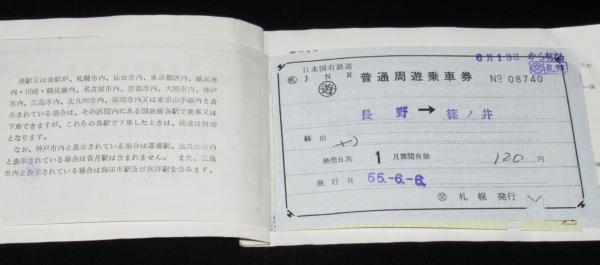 発駅又は着駅が、札幌市内、仙台市内、東京都区内、横浜市
内・川崎・鶴見線内、名古屋市内、京都市内、大阪市内、神戸
市内、広島市内、北九州市内、福岡市内又は東京山手線内と表
示されている場合は、その区間内にある国鉄線各駅で乗車又は
下車できますが、これらの各駅で下車したときは、前途は無効
となります。
なお、神戸市内と表示されている場合は道場駅、北九州市内
と表示されている場合は香月駅は含まれません。また、広島
市内と表示されている場合は海田市駅及び向洋駅を含みます。
6月13日から有効
日本国有鉄道
㊕ J N R 遊 普通周遊乗車券 № 08740
長野 → 篠ノ井
経由
発売日共 1 月間有効 120 円
発行日 55.-6.-6.
札幌発行